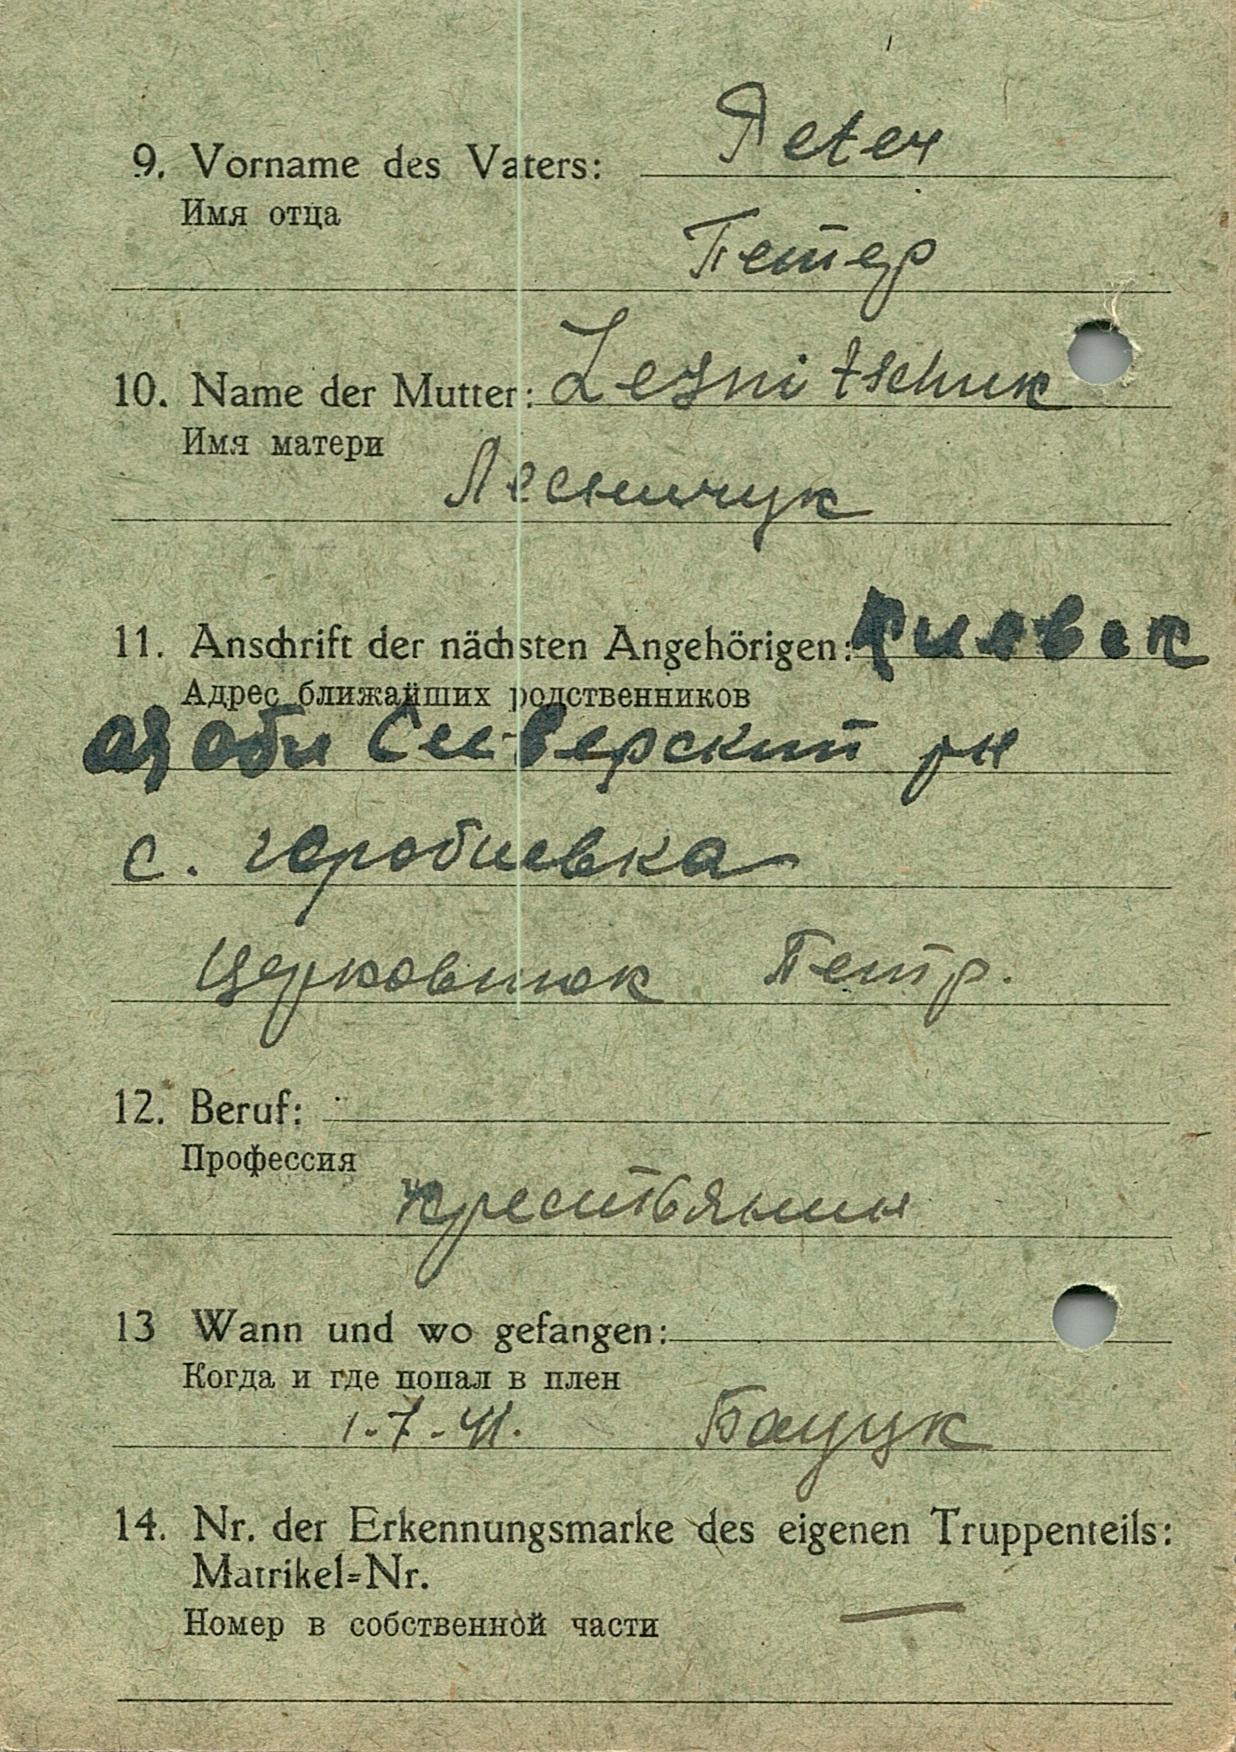 9. Vorname des Vaters: Peter
Имя отца
Петер
10. Name der Mutter: Lesnitschuk
Имя матери
Лесничук
11. Anschrift der nächsten Angehörigen: Киевск
Адрес ближайших родственников
ая обл Сиверский рн
с.
Церковнюк Петр.
12. Beruf:
Профессия
крестьянин
13 Wann und wo gefangen:
Когда и где попал в плен
1.-7.-41.
14. Nr. der Erkennungsmarke des eigenen Truppenteils:
Matrikel=Nr.
Номер в собственной части
—